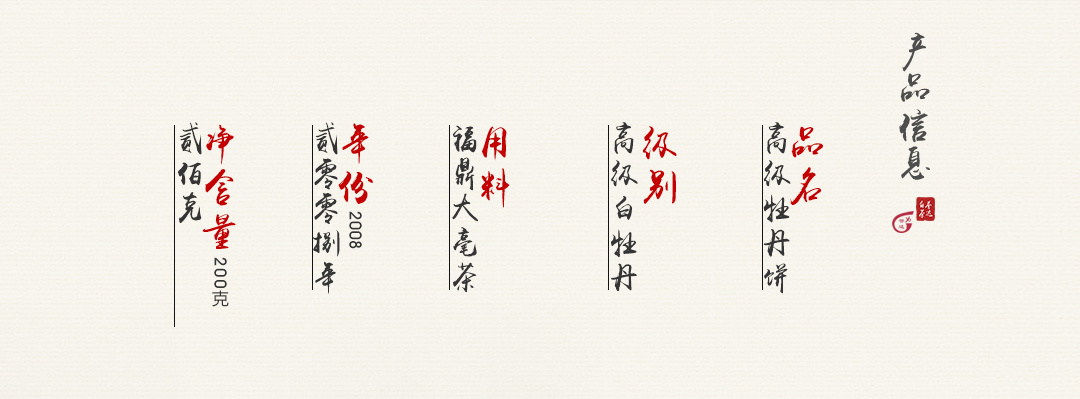 产品信息
品名
高级牡丹饼
级别
高级白牡丹
用料
福鼎大毫茶
年份2008
贰零零捌年
净含量200克
贰佰克